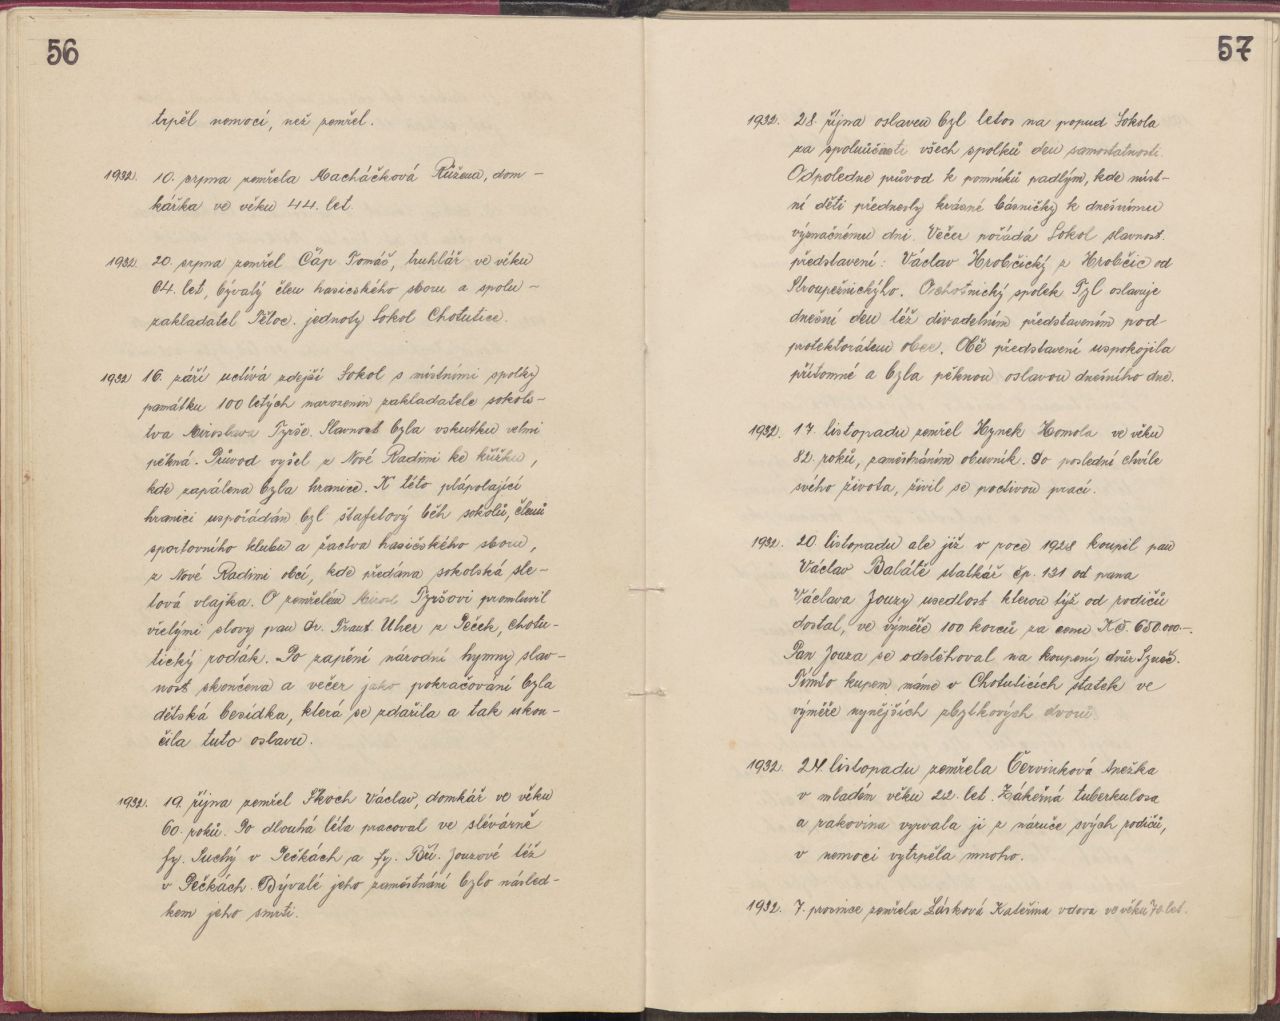 56
trpěl nemocí, než zemřel.
1932. 10. srpna zemřela Macháčková Růžena, dom-
kářka ve věku 44. let.
1932. 20. srpna zemřel Čáp Tomáš, truhlář ve věku
64. let, bývalý člen hasicského sboru a spolu-
zakladatel Těloc. jednoty Sokol Chotutice.
1932 16. září uctívá zdejší Sokol s místními spolky
památku 100 letých narozenin zakladatele sokols-
tva Miroslava Tyrše. Slavnost byla vskutku velmi
pěkná. Průvod vyšel z Nové Radimi ke křížku,
kde zapálena byla hranice. K této plápolající
hranici uspořádán byl štafetový běh sokolů, členů
sportovního klubu a žactva hasičského sboru,
z Nové Radimi obcí, kde předána sokolská sle-
tová vlajka. O zemřelém Mirosl. Tyršovi promluvil
vřelými slovy pan dr. Frant. Uher z Peček, chotu-
tický rodák. Po zapění národní hymny slav-
nost skončena a večer jako pokračování byla
dětská besídka, která se zdařila a tak ukon-
čila tuto oslavu.
1932. 19. října zemřel Škoch Václav, domkář ve věku
60. roků. Po dlouhá léta pracoval ve slévárně
fy. Suchý v Pečkách a fy. Bří. Jouzové též
v Pečkách. Bývalé jeho zaměstnání bylo násled-
kem jeho smrti.
57
1932. 28. října oslaven byl letos na popud Sokola
za spoluúčasti všech spolků den samostatnosti.
Odpoledne průvod k pomníků padlým, kde míst-
ní děti přednesly krásné básničky k dnešnímu
význačnému dni. Večer pořádá Sokol slavnost.
představení: Václav Hrobčický z Hrobčic od
Stroupežnickýho. Ochotnický spolek Tyl oslavuje
dnešní den též divadelním představením pod
protektorátem obec. Obě představení uspokojila
přítomné a byla pěknou oslavou dnešního dne.
1932. 17. listopadu zemřel Hynek Homola ve věku
82. roků, zaměstnáním obuvník. Do poslední chvíle
svého života, živil se poctivou prací.
1932. 20 listopadu ale již v roce 1928 koupil pan
Václav Balátě statkář čp. 131 od pana
Václava Jouzy usedlost kterou týž od rodičů
dostal, ve výměře 100 korců za cenu Kč. 650.000-.
Pan Jouza se odstěhoval na koupený dvůr
Tímto kupem máme v Chotuticích statek ve
výměře nynějších zbytkových dvorů
1932. 24. listopadu zemřela Červinková Anežka
v mladém věku 22. let. Zákeřná tuberkulosa
a rakovina vyrvala ji z náruče svých rodičů,
v nemoci vytrpěla mnoho.
1932. 7. prosince zemřela Lásková Kateřina vdova ve věku 70 let.